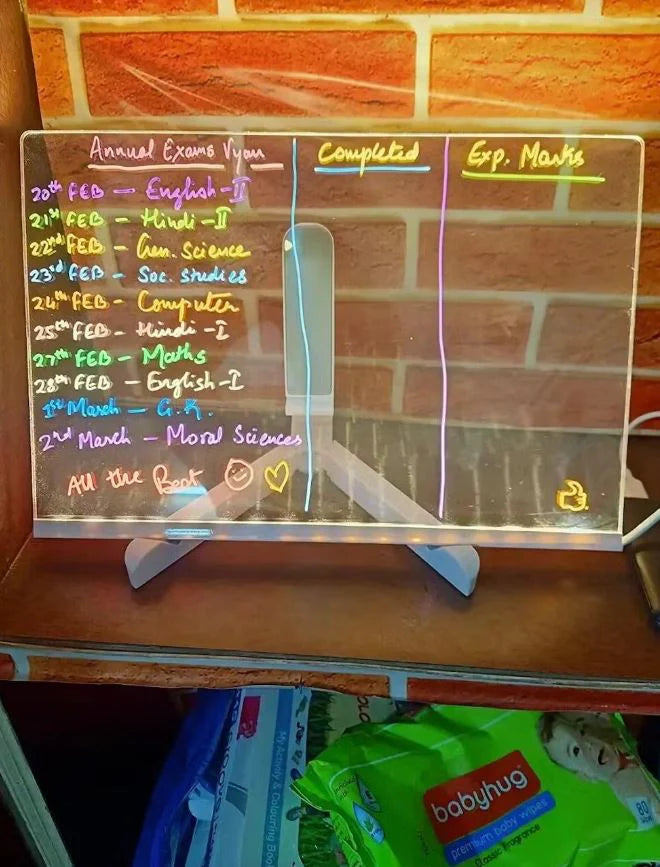 Annual Exams Vyan Completed Exp. Marks
20th FEB – English-II
21st FEB – Hindi -II
22nd FEB – Gen. Science
23rd FEB – Soc. Studies
24th FEB – Computer
25th FEB – Hindi -I
27th FEB – Maths
28th FEB – English-I
1st March – G.K.
2nd March – Moral Sciences
All the Best
My Activity & Colouring Boo
babyhug
premium baby wipes
Classic Fragrance
80